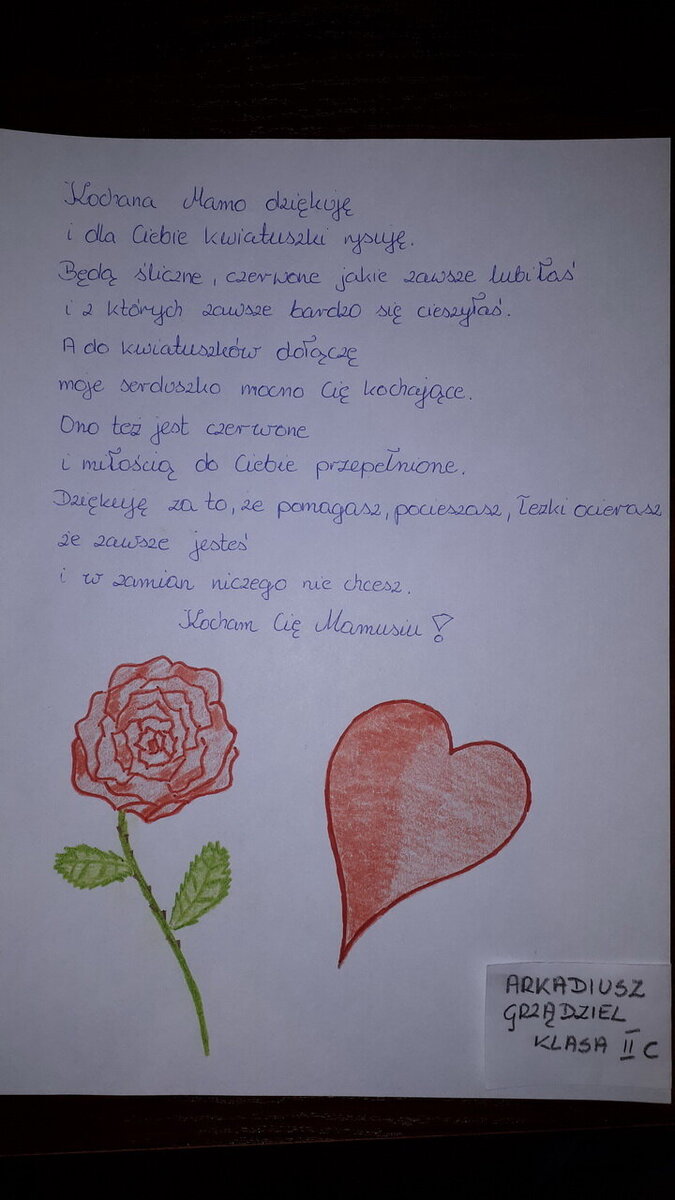 Kochana Mamo dziękuję
i dla Ciebie kwiatuszki rysuję.
Będą śliczne, czerwone jakie zawsze lubiłaś
i z których zawsze bardzo się cieszyłaś.
A do kwiatuszków dołączę
moje serduszko mocno Cię kochające.
Ono też jest czerwone
i miłością do Ciebie przepełnione.
Dziękuję za to, że pomagasz, pocieszasz, łezki ocierasz
że zawsze jesteś
i w zamian niczego nie chcesz.
Kocham Cię Mamusiu!
ARKADIUSZ
GRZĄDZIEL
KLASA II C